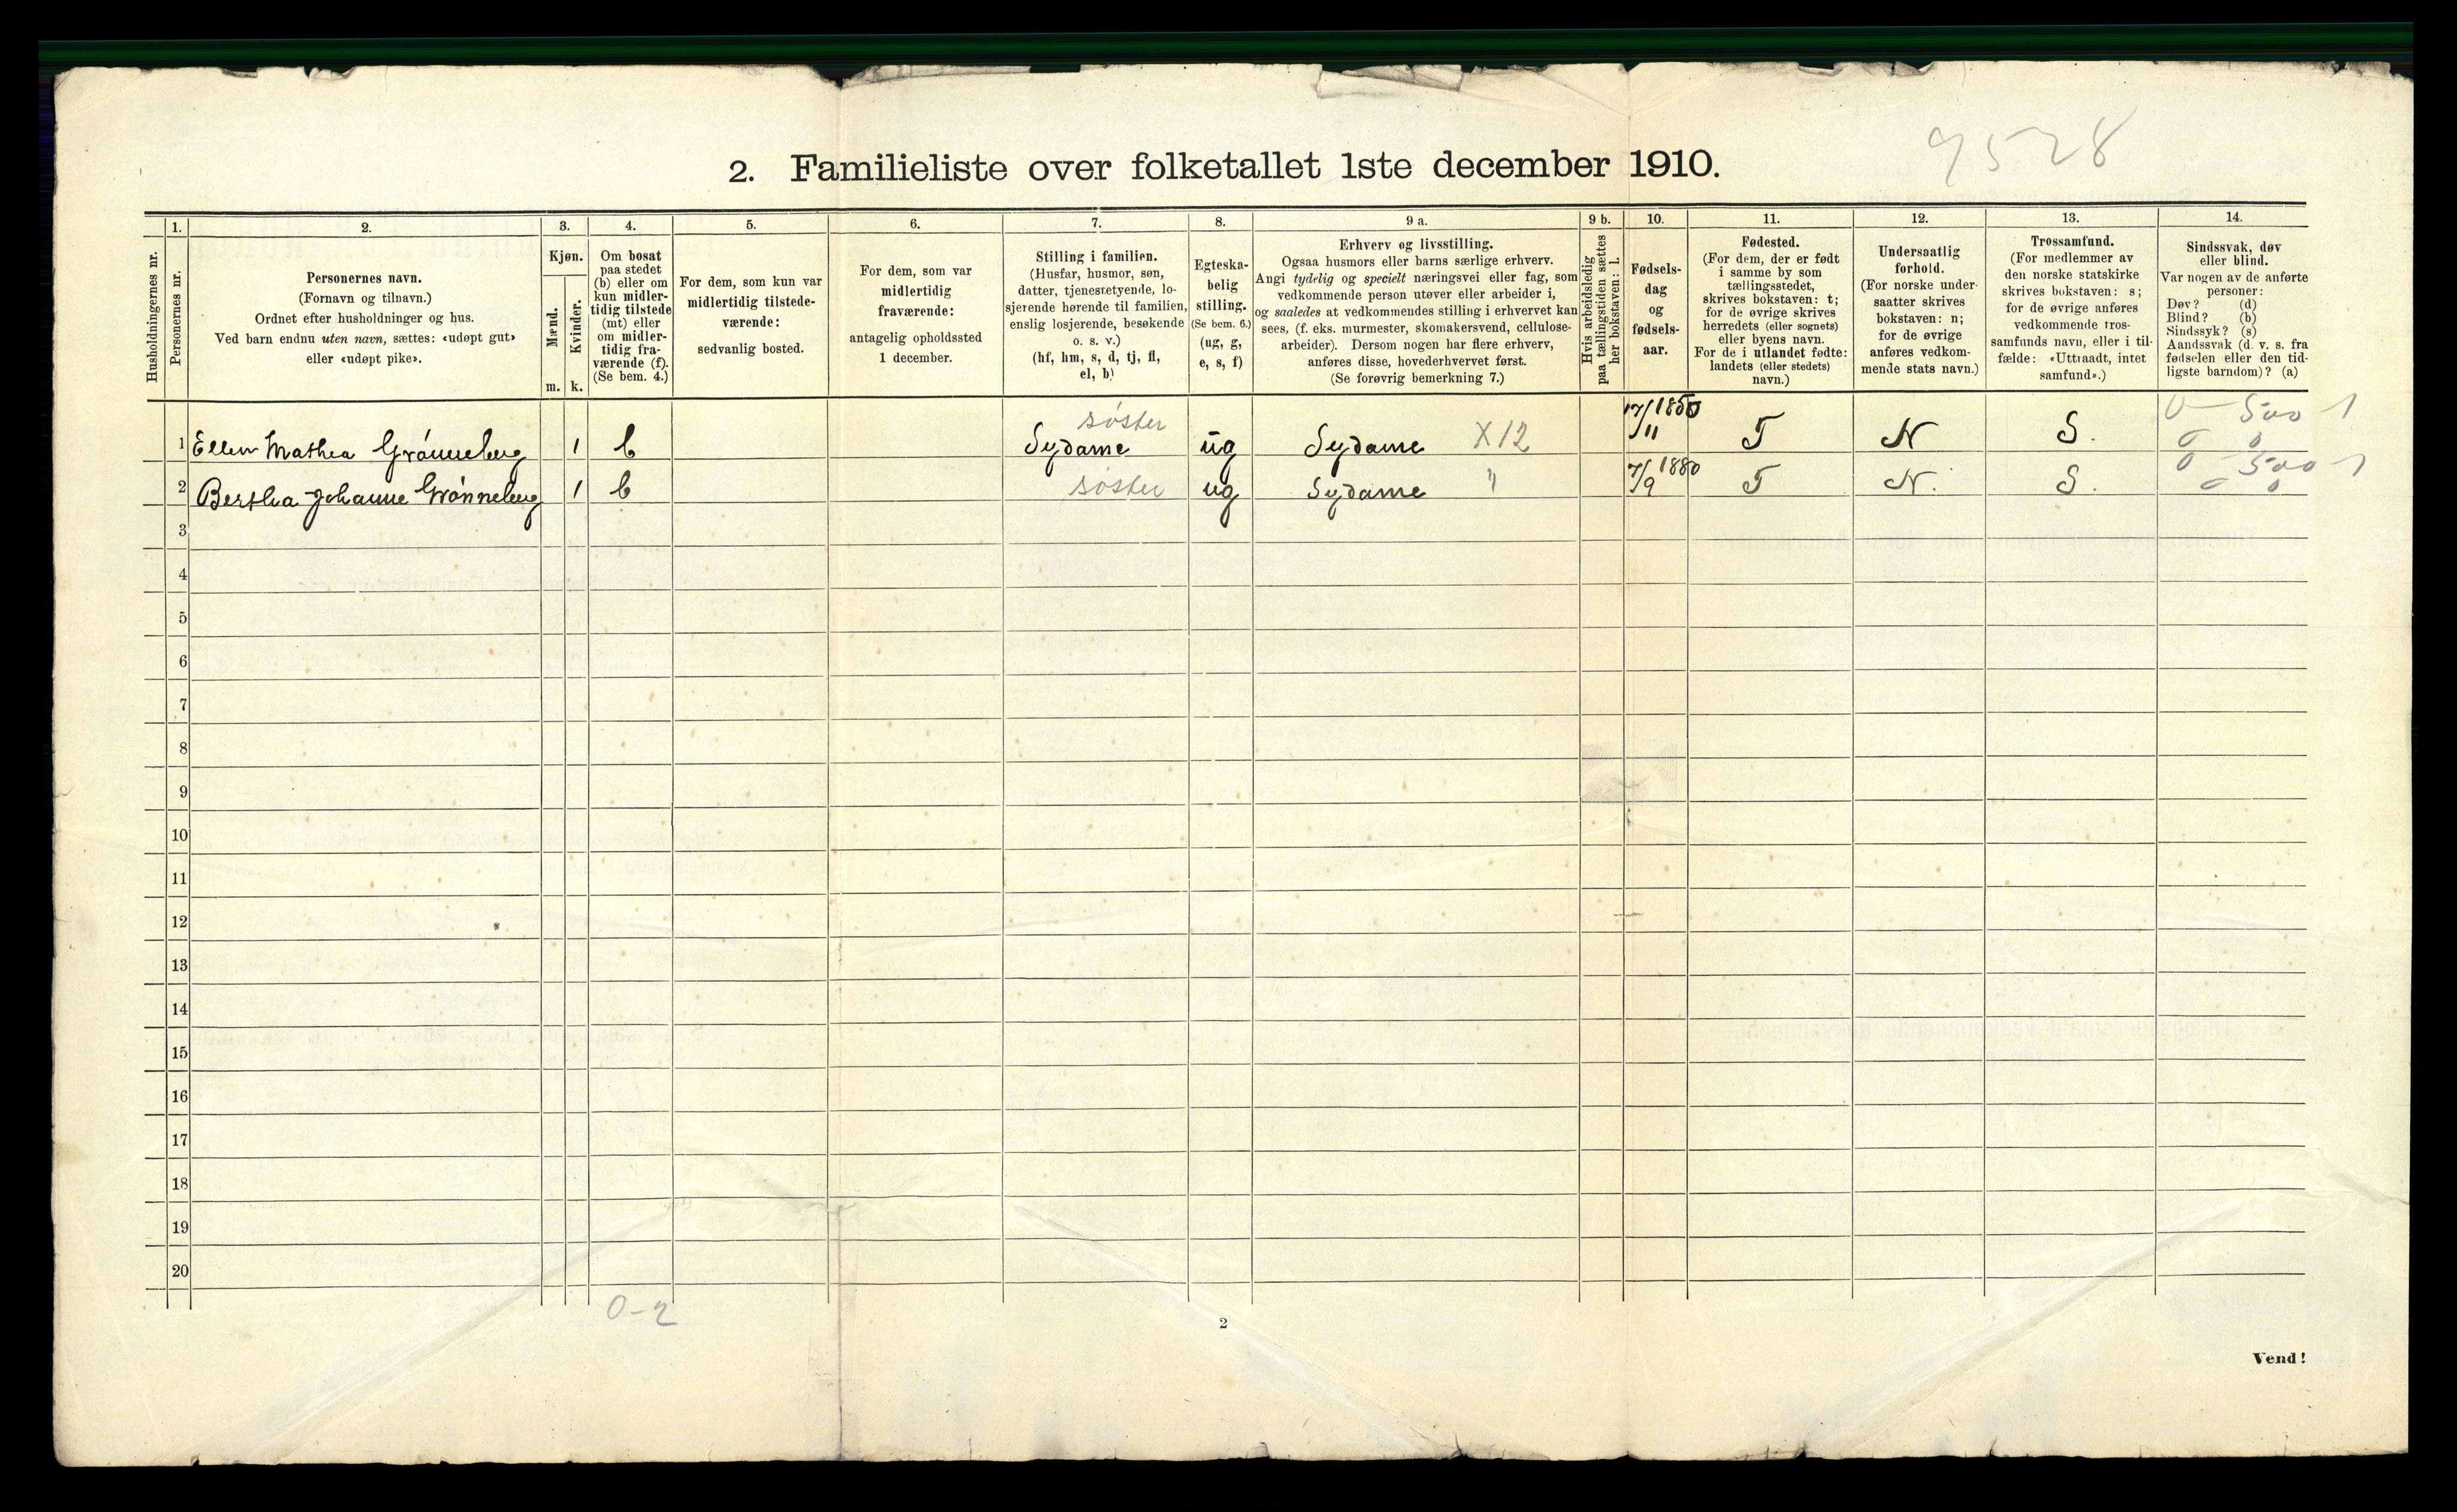 9528
2. Familieliste over folketallet 1ste december 1910.
Husholdningernes nr.
1.
Personernes nr.
2.
Personernes navn.
(Fornavn og tilnavn.)
Ordnet efter husholdninger og hus.
Ved barn endnu uten navn, sættes: «udøpt gut»
eller «udøpt pike».
3.
Kjøn.
Mænd.
m.
Kvinder.
k.
4.
Om bosat
paa stedet
(b) eller om
kun midler-
tidig tilstede
(mt) eller
om midler-
tidig fra-
værende (f).
(Se bem. 4.)
5.
For dem, som kun var
midlertidig tilstede-
værende:
sedvanlig bosted.
6.
For dem, som var
midlertidig
fraværende:
antagelig opholdssted
1 december.
7.
Stilling i familien.
(Husfar, husmor, søn,
datter, tjenestetyende, lo-
sjerende hørende til familien,
enslig losjerende, besøkende
o. s. v.)
(hf, hm, s, d, tj, fl,
el, b)
8.
Egteska-
belig
stilling.
(Se bem. 6.)
(ug, g,
e, s, f)
9 a.
Erhverv og livsstilling.
Ogsaa husmors eller barns særlige erhverv.
Angi tydelig og specielt næringsvei eller fag, som
vedkommende person utøver eller arbeider i,
og saaledes at vedkommendes stilling i erhvervet kan
sees, (f. eks. murmester, skomakersvend, cellulose-
arbeider). Dersom nogen har flere erhverv,
anføres disse, hovederhvervet først.
(Se forøvrig bemerkning 7.)
9 b.
Hvis arbeidsledig
paa tællingstiden sættes
her bokstaven: l.
10.
Fødsels-
dag
og
fødsels-
aar.
11.
Fødested.
(For dem, der er født
i samme by som
tællingsstedet,
skrives bokstaven: t;
for de øvrige skrives
herredets (eller sognets)
eller byens navn.
For de i utlandet fødte:
landets (eller stedets)
navn.)
12.
Undersaatlig
forhold.
(For norske under-
saatter skrives
bokstaven: n;
for de øvrige
anføres vedkom-
mende stats navn.)
13.
Trossamfund.
(For medlemmer av
den norske statskirke
skrives bokstaven: s;
for de øvrige anføres
vedkommende tros-
samfunds navn, eller i til-
fælde: «Uttraadt, intet
samfund».)
14.
Sindssvak, døv
eller blind.
Var nogen av de anførte
personer:
Døv? (d)
Blind? (b)
Sindssyk? (s)
Aandssvak (d. v. s. fra
fødselen eller den tid-
ligste barndom)? (a)
søster 0 - 500 - 1
1 Ellen Mathea Grønneberg 1 b Sydame ug Sydame X12 17/11 T N S. 0 0
0 - 500 - 1
2 Bertha Johanne Grønneberg 1 b søster ug Sydame " 7/9 1880 T N. S. 0 0
3
4
5
6
7
8
9
10
11
12
13
14
15
16
17
18
19
20
0-2
2
Vend!